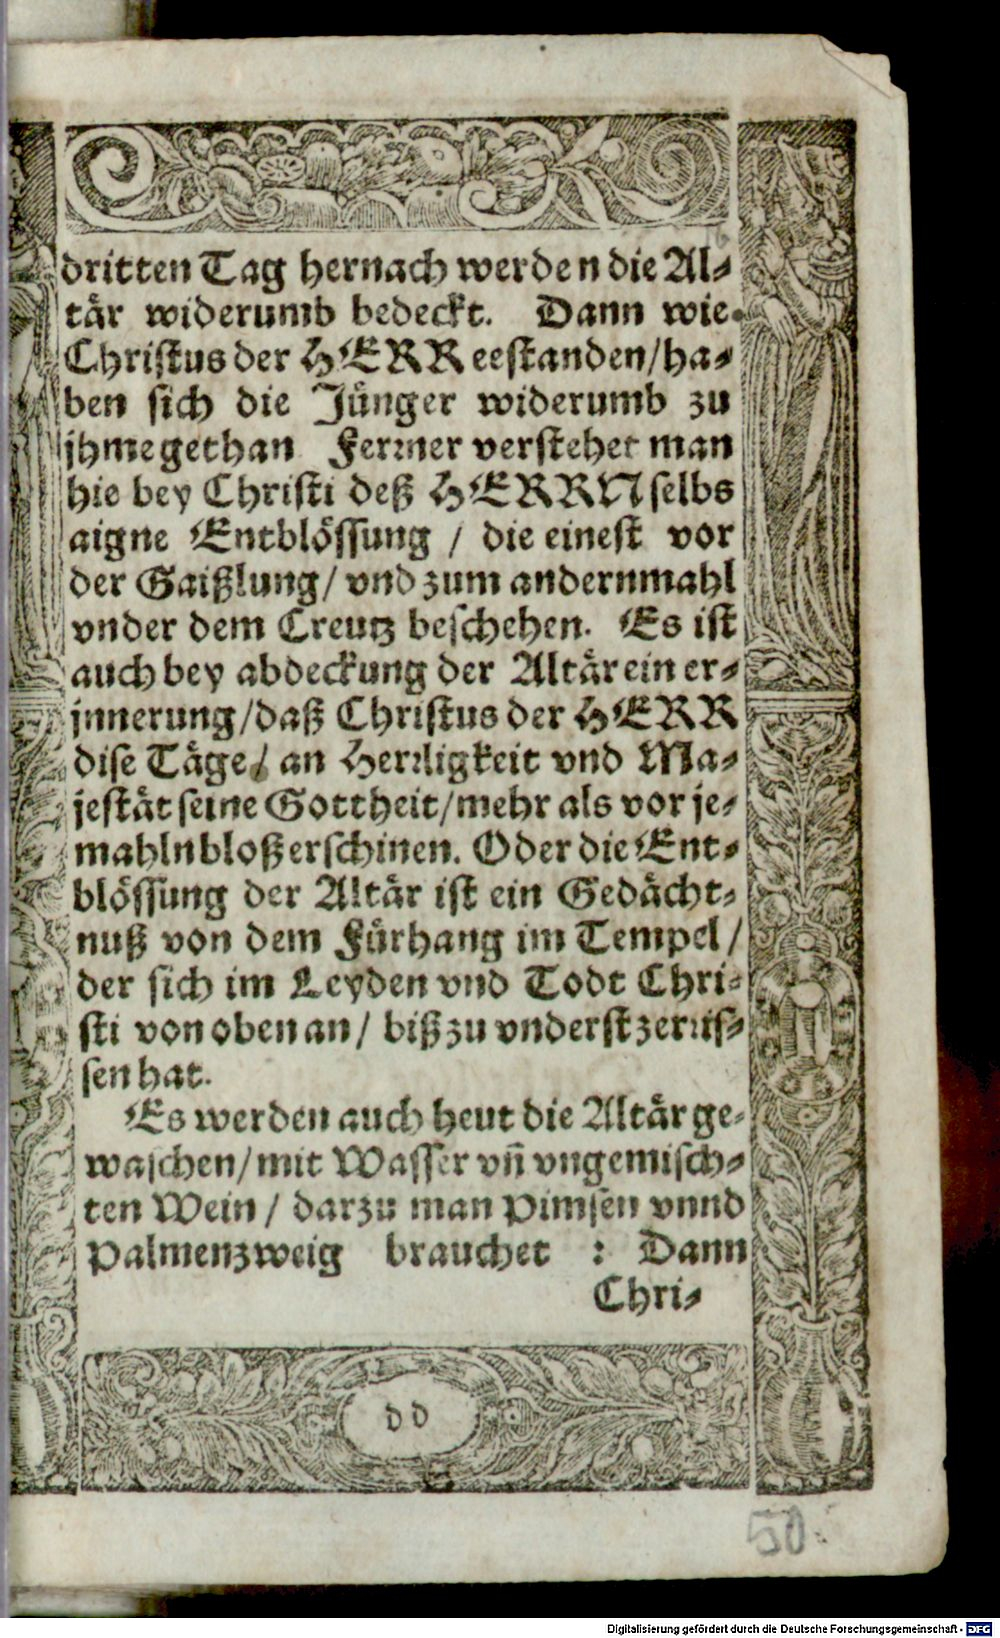 dritten Tag hernach werden die Al⸗
tär widerumb bedeckt. Dann wie
Christus der HERR eestanden/ha⸗
ben sich die Jünger widerumb zu
jhme gethan Ferrner verstehet man
hie bey Christi deß HERRN selbs
aigne Entblössung / die einest vor
der Gaißlung/ vnd zum andernmahl
vnder dem Creutz beschehen. Es ist
auch bey abdeckung der Altär ein er⸗
jnnerung/daß Christus der HERR
dise Täge/ an Herrligkeit vnd Ma⸗
jestät seine Gottheit/mehr als vor je⸗
mahln bloß erschinen. Oder die Ent⸗
blössung der Altär ist ein Gedächt⸗
nuß von dem Fürhang im Tempel/
der sich im Leyden vnd Todt Chri⸗
sti von oben an/ biß zu vnderst zerris⸗
sen hat.
Es werden auch heut die Altär ge⸗
waschen/mit Wasser vñ vngemisch⸗
ten Wein/ darzu man Pimsen vnnd
Palmenzweig brauchet : Dann
Chri⸗
dd
50
Digitalisierung gefördert durch die Deutsche Forschungsgemeinschaft - DFG